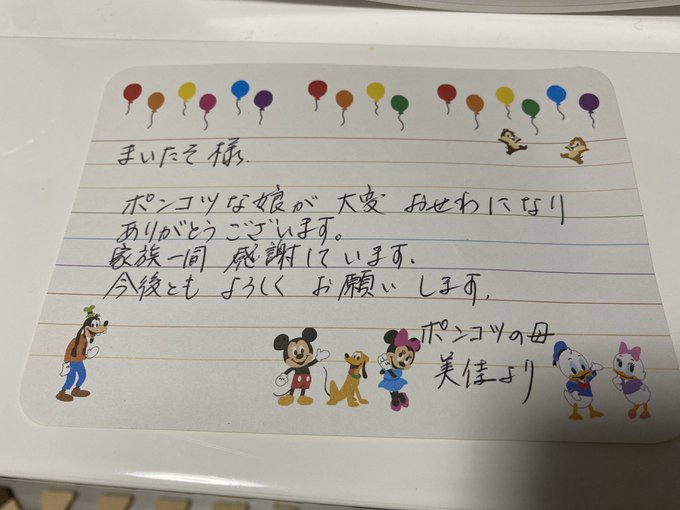 まいたそ様
ポンコツな娘が 大変 おせわになり
ありがとうございます。
家族一同 感謝しています。
今後とも よろしく お願い します。
ポンコツの母
美佳より